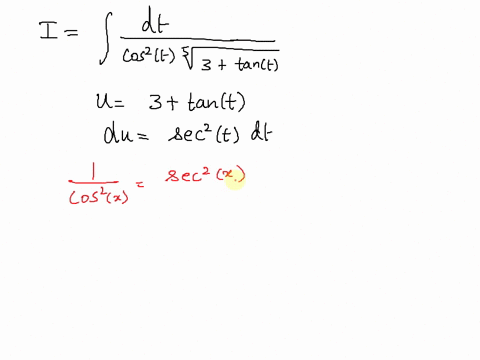 I = ∫ dt / cos²(t) ⁵√3 + tan(t)
u = 3 + tan(t)
du = sec²(t) dt
1 / cos²(x) = sec²(x)